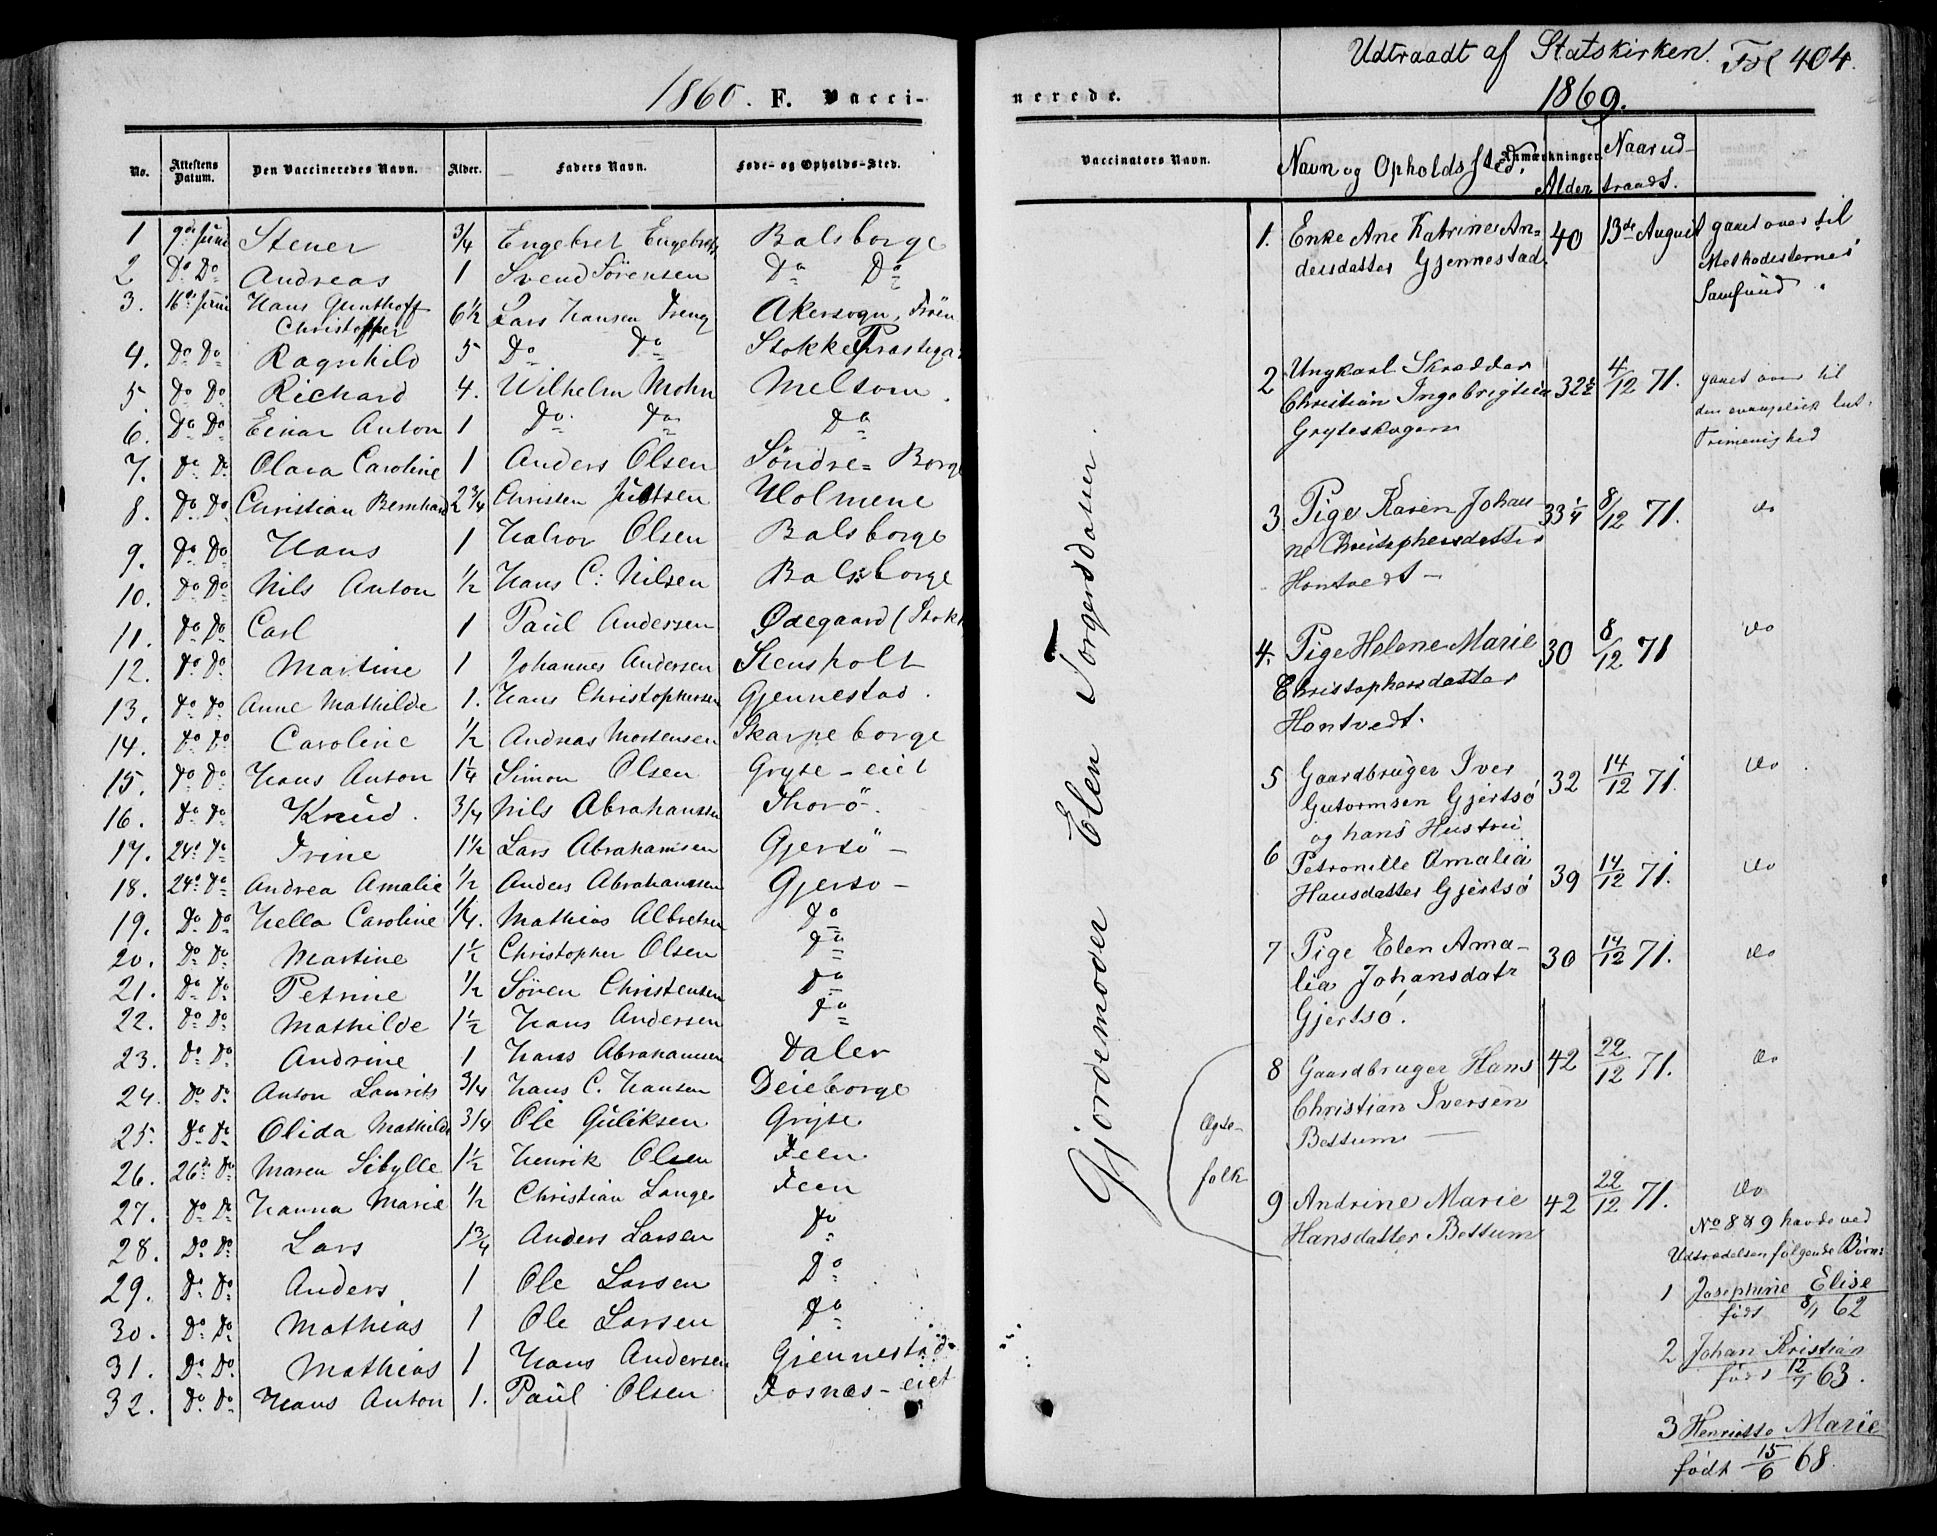 1860. F. Vacci-
No. Attestens Datum. Den Vaccineredes Navn. Alder. Faders Navn. Føde- og Opholds-Sted.
1 9de Juni Stener 3/4 Engebret Engebrets Balsborge
2 Do Do Andreas 1 Svend Sörensen Do Do
3. 16de Juni Hans Christopher 6 1/2 Lars Hansen Treng Akersogn,
4. Do Do Ragnhild 5 Do Do Stokke Præstega
5 Do Do Richard 4. Wilhelm Mohn Melsom
6. Do Do Einar Anton 1 Do Do Do
7. Do Do Olava Caroline 1 Anders Olsen Söndre= Borge
8. Do Do Christian Bernhard 2 3/4 Christen Holmene
9. Do Do Hans 1 Halvor Olsen Balsborge
10. Do Do Nils Anton 1/2 Hans C: Nilsen Balsborge
11. Do Do Carl 1 Paul Andersen Ødegaard (Stok
12. Do Do Martine 1 Johannes Andersen Stensholt
13. Do Do Anne Mathilde 1. Hans Christophersen Gjennestad.
14. Do Do Caroline 1/2 Andreas Mortensen Skarpeborge
15. Do Do Hans Anton 1 1/4 Simon Olsen Gryte-eiet
16. Do Do Knud. 3/4 Nils Abrahamsen Thorö.
17. 24de Do Trine 1 1/2 Lars Abrahamsen Gjersö-
18. 24de Do Andrea Amalie 1/2 Anders Abrahamsen Gjersö-
19. Do Do Hella Caroline 1/4. Mathias Albretsen Do
20. Do Do Martine 1 1/2 Christopher Olsen Do
21. Do Do Petrine 1/2 Sören Christensen Do
22. Do Do Mathilde 1 1/2 Hans Andersen Do
23. Do Do Andrine 1 Hans Abrahamsen Dalen
24. Do Do Anton Laurits 3/4 Hans C. Hansen Deieborge
25. Do Do Olida Mathilde 3/4 Ole Guliksen Gryte
26. 26de Do Maren Sibylle 1 1/2 Henrik Olsen Feen
27. Do Do Hanna Marie 1/2 Christian Lange Feen
28. Do Do Lars 1 3/4 Anders Larsen Do
29. Do Do Anders 1 Ole Larsen Do
30. Do Do Mathias 1 Ole Larsen Do
31. Do Do Mathias 1 Hans Andersen Gjennestad
32. Do Do Hans Anton 1. Paul Olsen Fosnæs-eiet
nerede.
Udtraadt af Statskirken. Fol 404.
1869.
Vaccinators Navn. Anmærkninger.
Navn og Opholdssted. Alder Naar ud-
traadt.
Gjordemoder Elen Torgersdatter.
1. Enke Ane Katrine An- 40 13de August gaaet over til
dersdatter Gjennestad. Methodisternes
Samfund.
2 Ungkarl Skrædder
Christian Ingebrigtsen 32 1/2 4/12 71. gaaet over til
Gryteskogen den evangelisk luth.
Frimenighed
3 Pige Karen Johan- 33 1/4 8/12 71. do
ne Christophersdatter
Hontvedt-
4. Pige Helene Marie 30 8/12 71 do
Christophersdatter
Hontvedt.
5 Gaardbruger Iver 32 14/12 71. do
Gutormsen Gjertsö
og hans Hustru
6 Petronille Amalia
Hansdatter Gjertsö 39 14/12 71. do
7 Pige Elen Ama- 30 14/12 71. do
lia Johansdatr
Gjertsö.
8 Gaardbruger Hans 42 22/12 71. do
Christian Iversen
Bettum -
Ægte-
folk
9 Andrine Marie 42 22/12 71. do
Hansdatter Bettum
No 8 & 9 havde ved
Udtrædelsen følgende Børn:
1 Josephine Elise
født 8/1 62
2 Johan Kristian
født 12/7 63.
3 Henriette Marie
født 15/6 68.